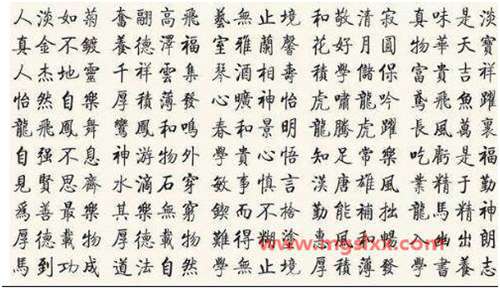 人淡如菊 奮翮高飛 藝無止境 和敬清寂 真味是淡
真金不鍍 養德澤福 室雅蘭馨 花好月圓 物華天寶
人杰地靈 千祥雲集 琴酒相壽 積學儲保 富貴吉祥
怡然自樂 厚積薄發 心曠神怡 虎嘯龍吟 鳶飛魚躍
龍飛鳳舞 鸞鳳和鳴 春和景明 龍騰虎躍 長風萬裏
自强不息 神游物外 學貴心悟 知足常樂 吃虧是福
見賢思齊 水滴石穿 敏事慎言 漢唐雄風 業精于勤
爲善最樂 其樂無窮 鍥而不捨 勤能補拙 龍馬精神
厚德載物 厚德載物 難得糊塗 惠風和暢 出朗
馬到功成 道法自然 學無止境 厚積薄發 學書養志
www.mgslxx.com